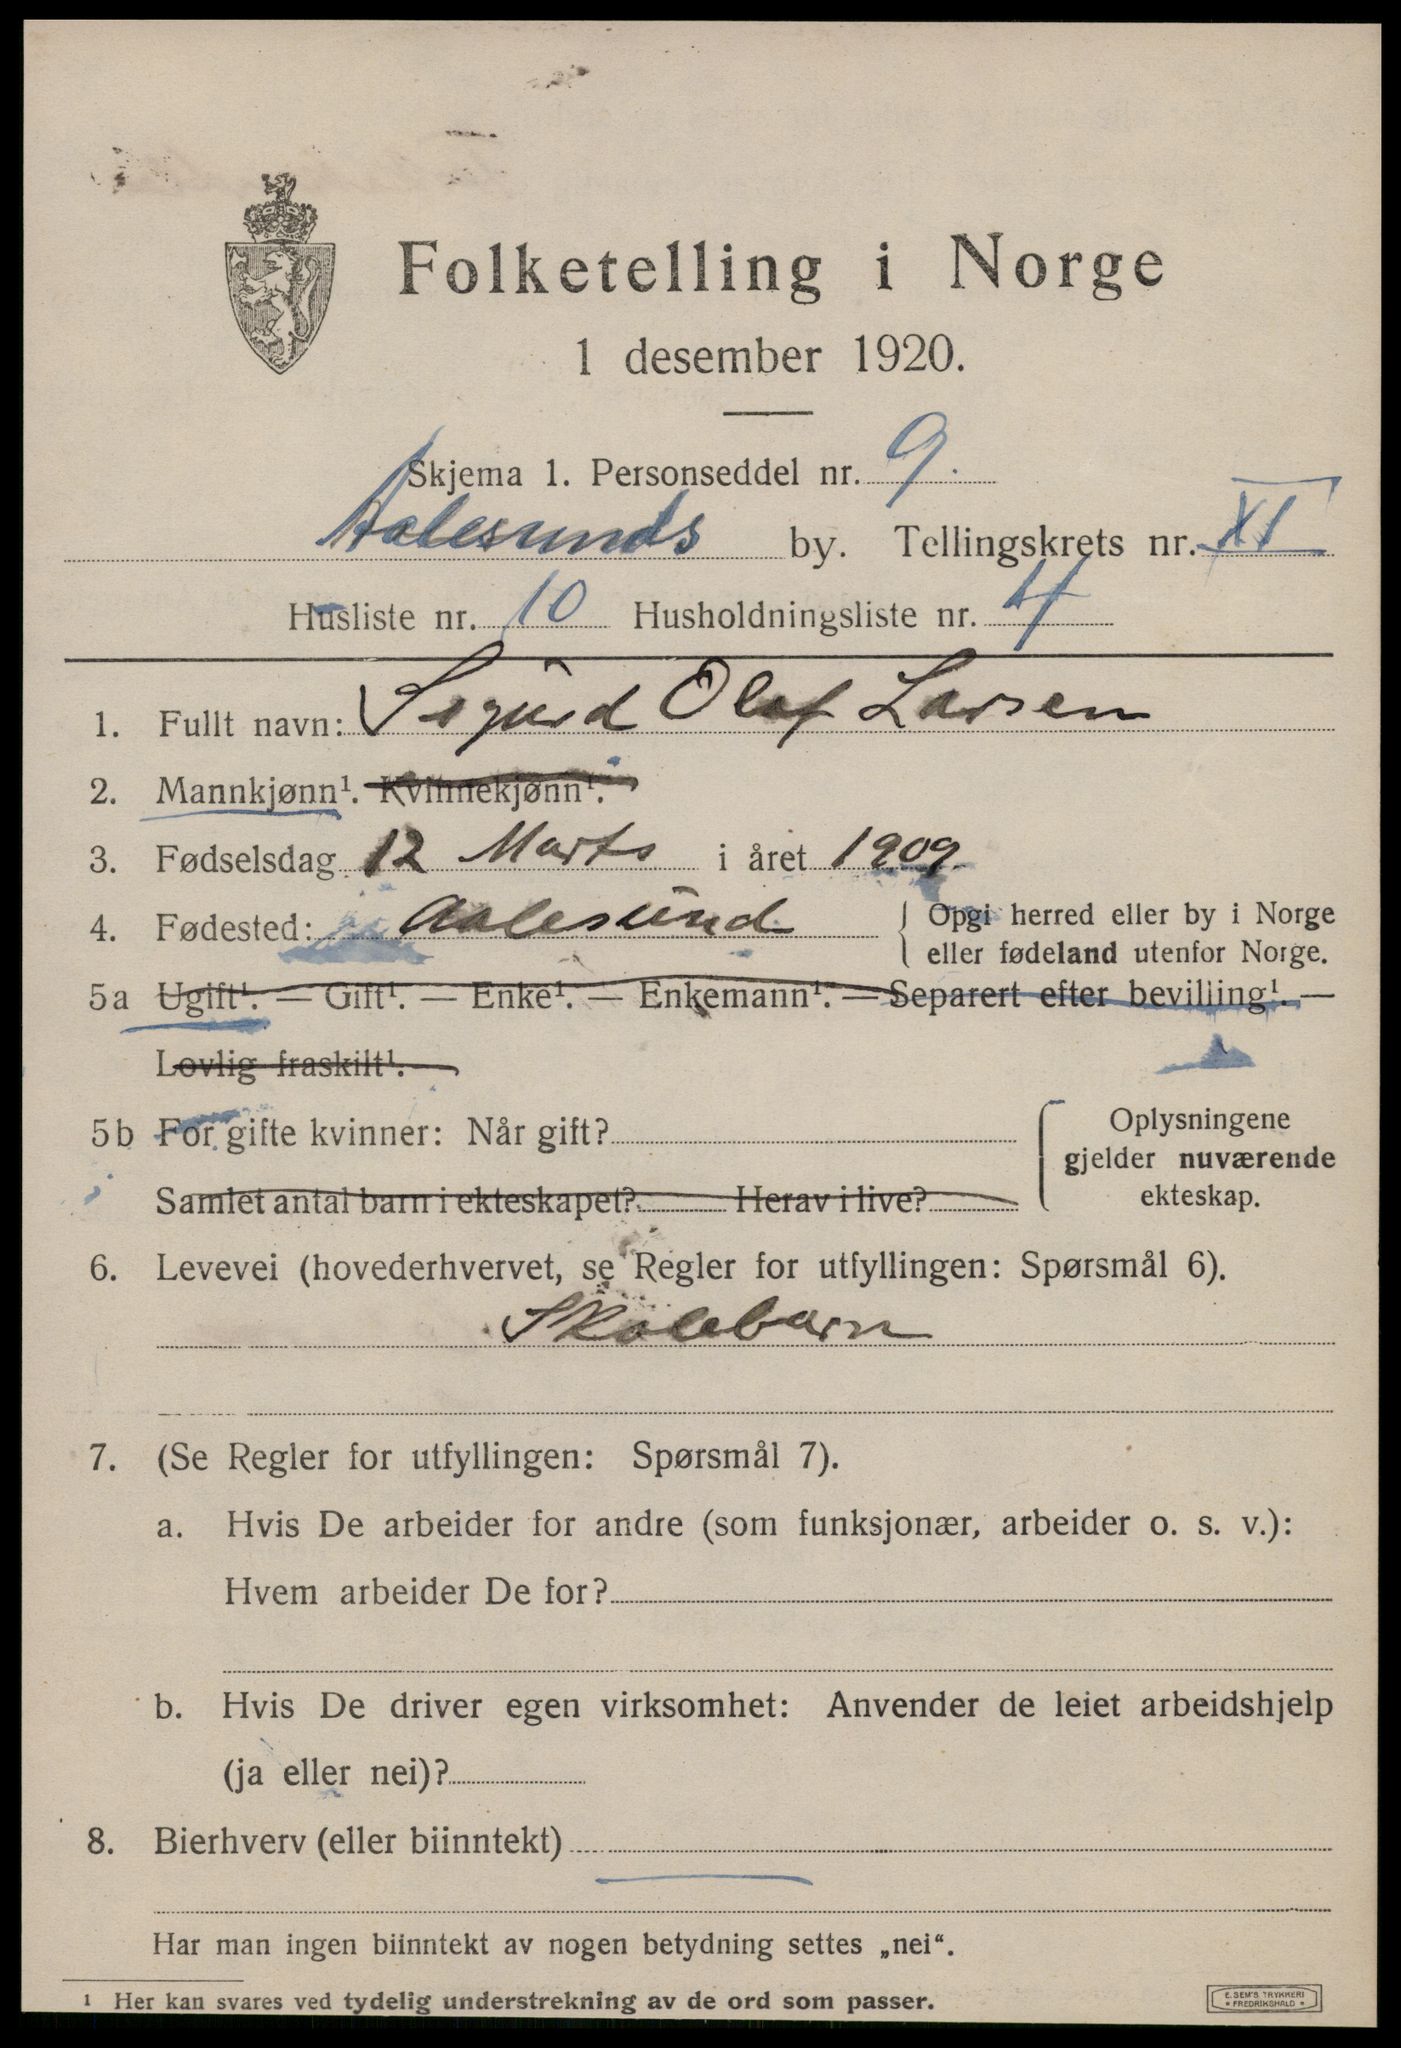 Folketelling i Norge
1 desember 1920.
Skjema 1. Personseddel nr. 9.
Aalesunds by. Tellingskrets nr. XI
Husliste nr. 10 Husholdningsliste nr. 4
1. Fullt navn: Sigurd Olaf Larsen
2. Mannkjønn¹. Kvinnekjønn¹.
3. Fødselsdag 12 Marts i året 1909
4. Fødested: Aalesund { Opgi herred eller by i Norge
eller fødeland utenfor Norge.
5a Ugift¹. — Gift¹. — Enke¹. — Enkemann¹. — Separert efter bevilling¹. —
Lovlig fraskilt¹.
5b For gifte kvinner: Når gift?
Samlet antal barn i ekteskapet? Herav i live?
{ Oplysningene
gjelder nuværende
ekteskap.
6. Levevei (hovederhvervet, se Regler for utfyllingen: Spørsmål 6).
Skolebarn
7. (Se Regler for utfyllingen: Spørsmål 7).
a. Hvis De arbeider for andre (som funksjonær, arbeider o. s. v.):
Hvem arbeider De for?
b. Hvis De driver egen virksomhet: Anvender de leiet arbeidshjelp
(ja eller nei)?
8. Bierhverv (eller biinntekt)
Har man ingen biinntekt av nogen betydning settes „nei“.
¹ Her kan svares ved tydelig understrekning av de ord som passer.
E. SEM'S TRYKKERI
* FREDRIKSHALD *